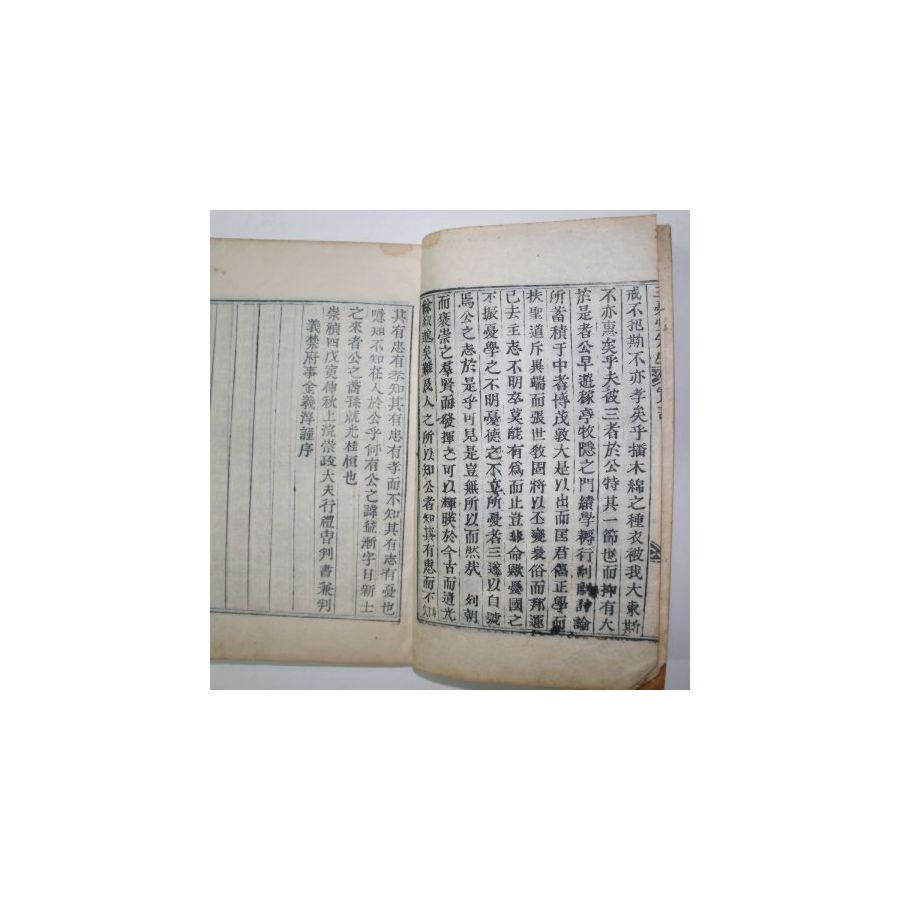 三憂堂先生實記
戒不犯斯不亦孝矣乎播木綿之種衣被我大東斯
不亦惠矣乎夫彼三者於公特其一節也而抑有大
於是者公早遊稼亭牧隱之門績學耨行討論
所蓄積于中者博茂敦大是以出而匡君傷正學而
扶聖道斥異端而張世教固將以丕變衰俗而邦運
已去主志不明卒莫能有爲而止豈非命歟憂國之
不振憂學之不明憂德之不立所憂者三遂以自號
焉公之志於是乎可見是豈無所以而然哉列朝
而褒崇之羣賢而發揮之可以輝暎於今古而遺光
餘烈邈矣難及人之所以知公者知其有惠而不知
其有忠有孝知其有忠有孝而不知其有志有憂也
噫知不知在人於公乎何有公之諱益漸字日新士
之來者公之裔孫就光桂恒也
崇禎四戊寅仲秋上浣崇政大夫行禮曹判書兼判
義禁府事金義淳謹序